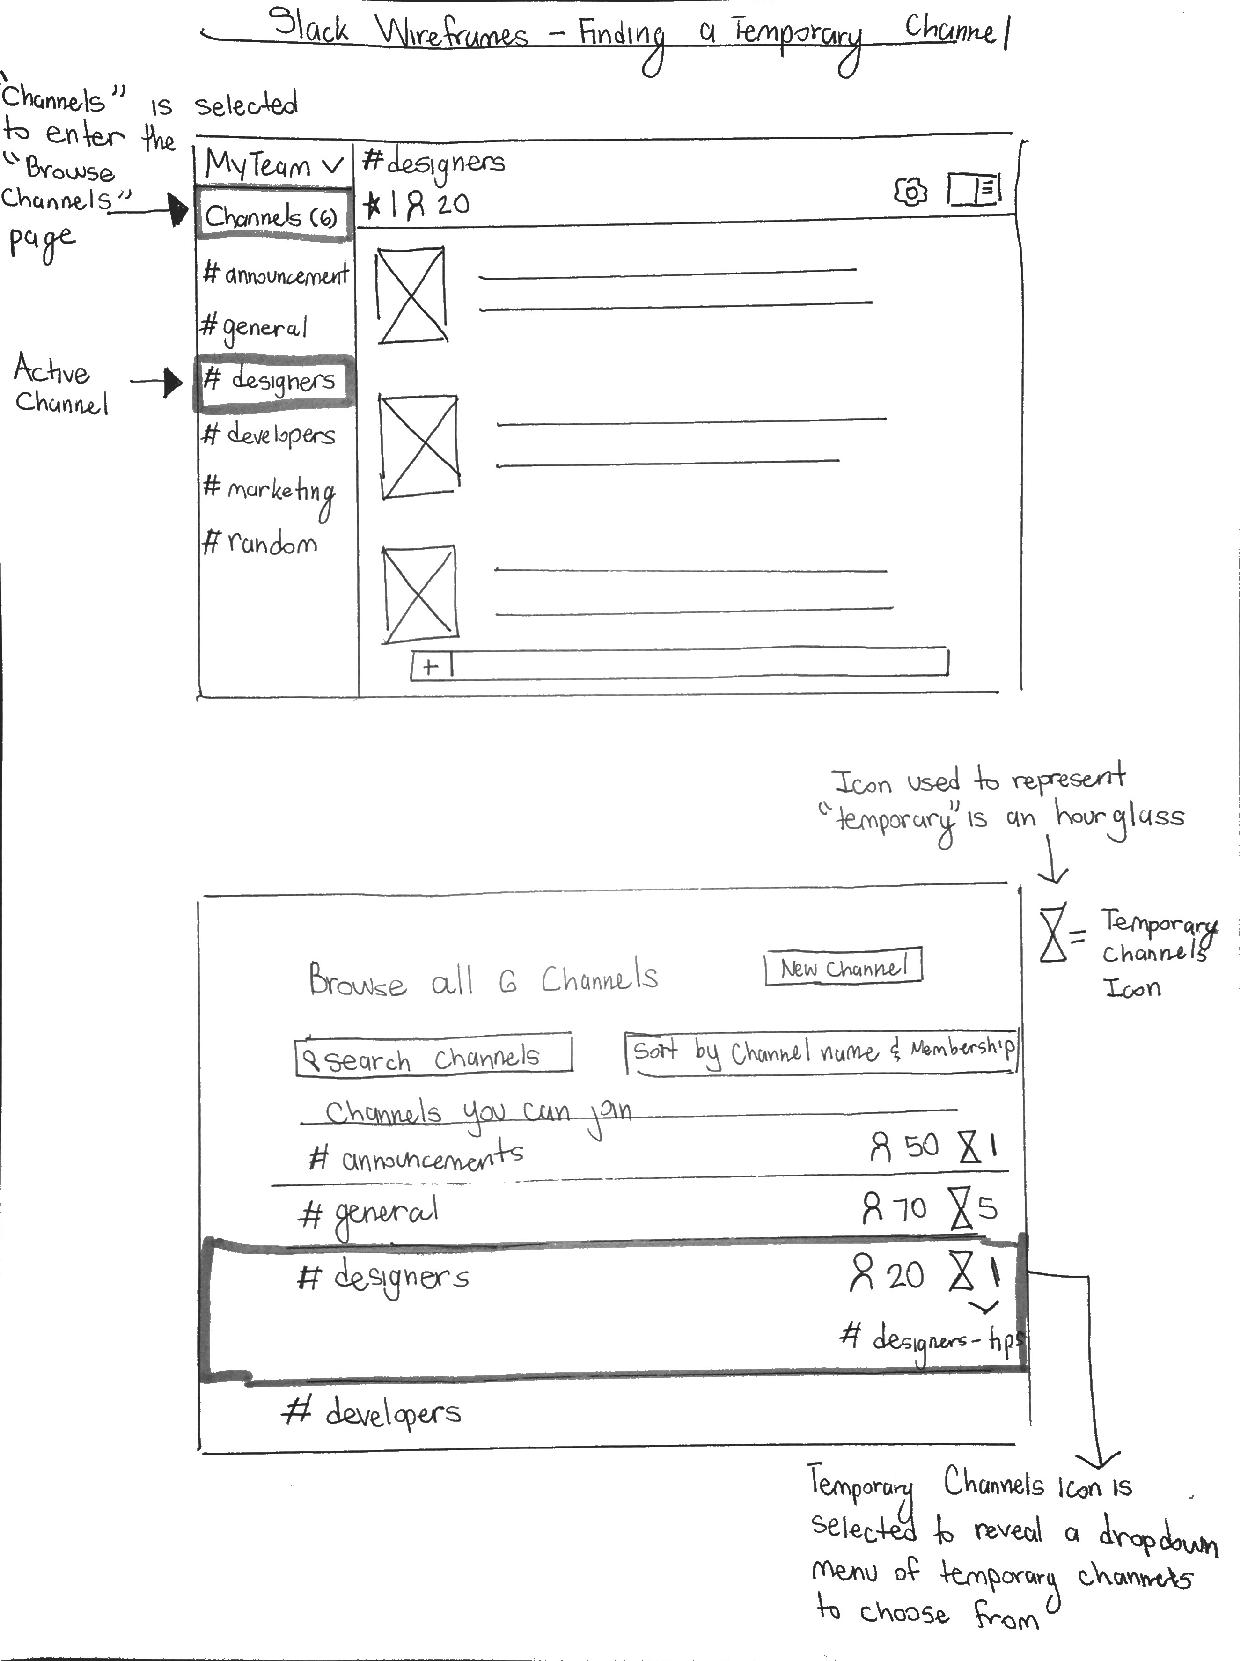 Slack Wireframes - Finding a Temporary Channel
"Channels" is selected
to enter the
"Browse
Channels"
page
My Team
Channels (6)
# announcement
# general
# designers
# developers
# marketing
# random
Active
Channel
# designers
20
+
Icon used to represent
"temporary" is an hourglass
= Temporary
Channels
Icon
Browse all 6 Channels
New Channel
Search Channels
Sort by Channel name & Membership
Channels you can join
# announcements 50 1
# general 70 5
# designers 20 1
# designers-tips
# developers
Temporary Channels icon is
selected to reveal a dropdown
menu of temporary channels
to choose from